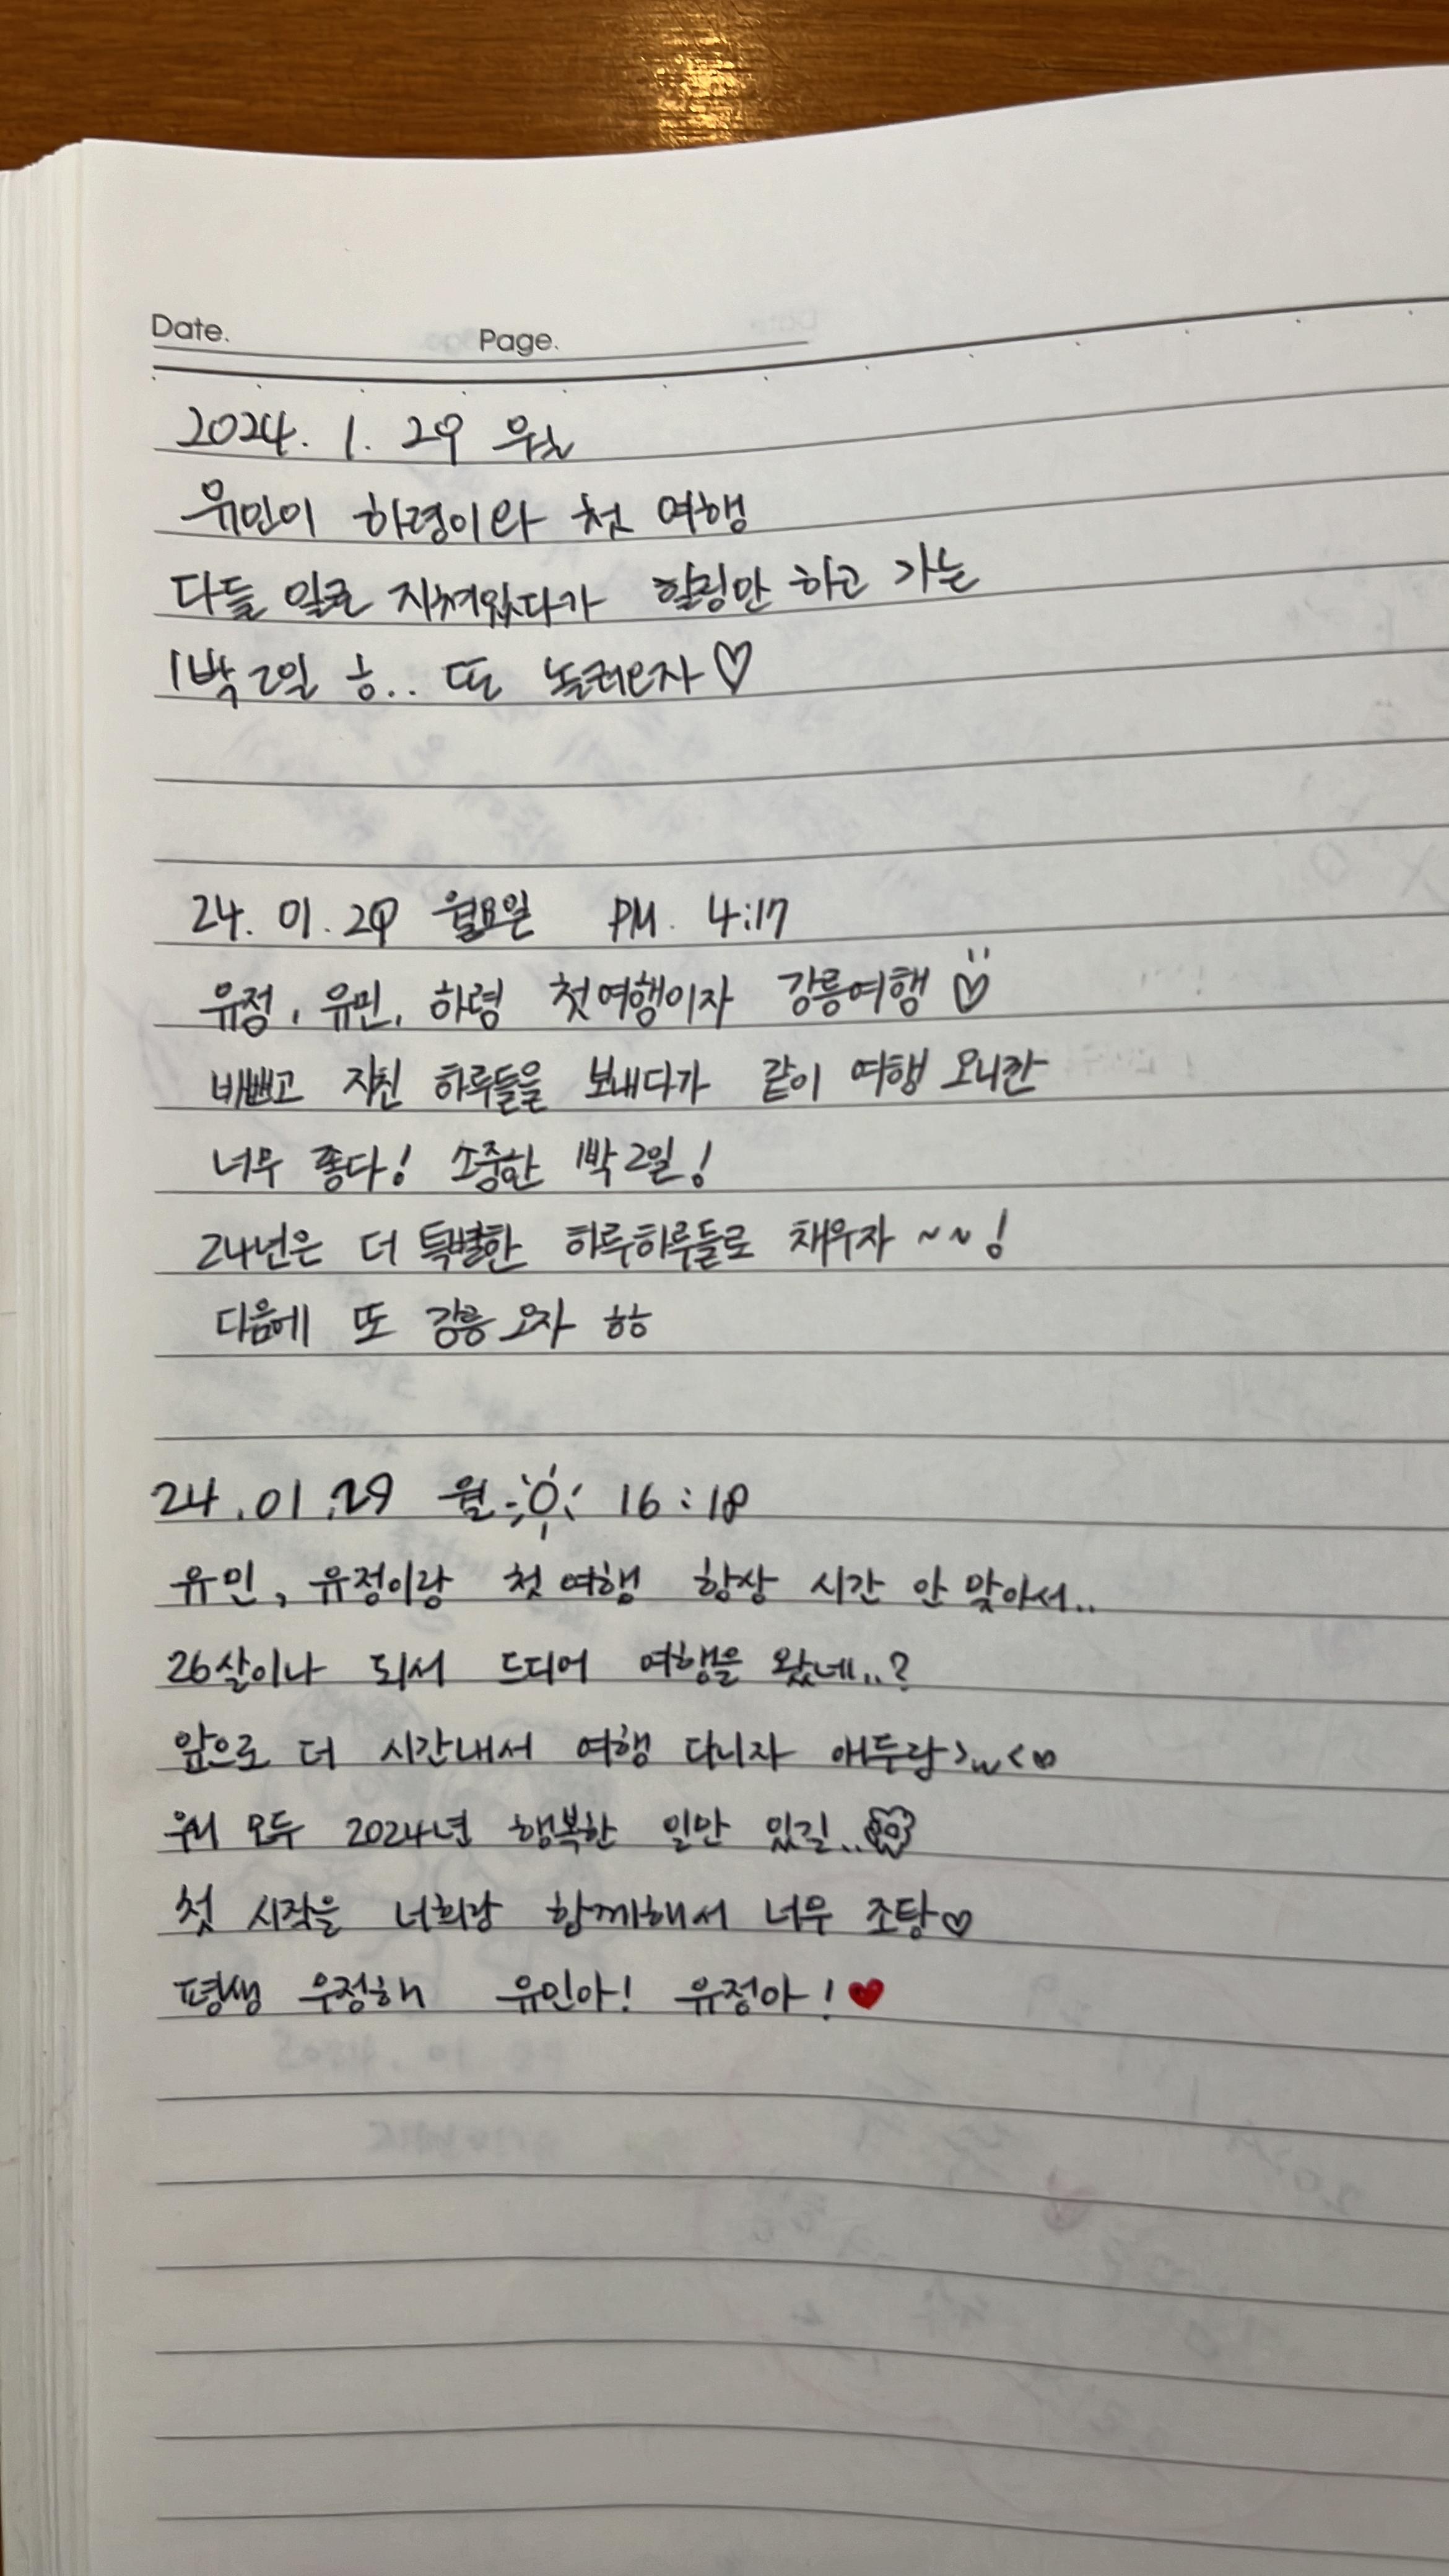 Date. Page.
2024. 1. 29 월
유민이 하령이와 첫 여행
다들 일로 지쳐있다가 힐링만 하고 가는
1박 2일 ㅎ.. 또 놀러오자♡
24. 01. 29 월요일 PM. 4:17
유정, 유민, 하령 첫여행이자 강릉여행♡
바쁘고 지친 하루들을 보내다가 같이 여행 오니깐
너무 좋다! 소중한 1박 2일!
24년은 더 특별한 하루하루들로 채우자 ~~!
다음에 또 강릉 오자 ㅎㅎ
24.01.29 월 16:18
유민, 유정이랑 첫 여행 항상 시간 안 맞아서..
26살이나 되서 드디어 여행을 왔네..?
앞으로 더 시간내서 여행 다니자 애두랑>w<♡
우리 모두 2024년 행복한 일만 있길..
첫 시작을 너희랑 함께해서 너무 조탕♡
평생 우정해 유민아! 유정아!♥